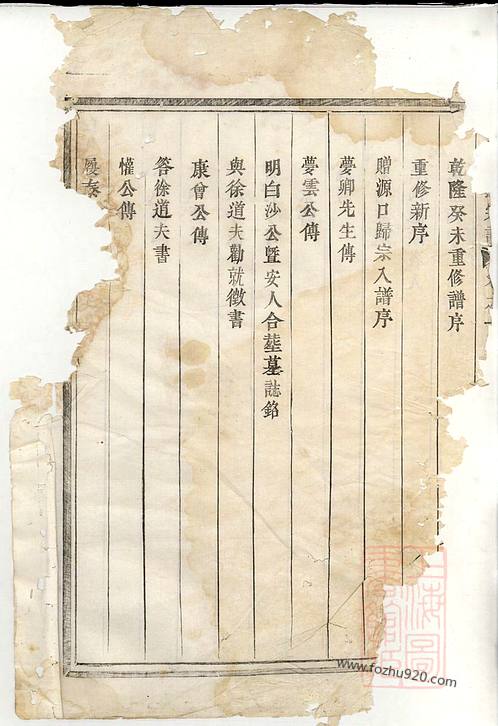 乾隆癸未重修譜序
重修新序
贈源口歸宗入譜序
夢卿先生傳
夢雲公傳
明白沙公暨安人合塟墓誌銘
與徐道夫勸就徵書
康曾公傳
答徐道夫書
懽公傳
www.fozhu920.com